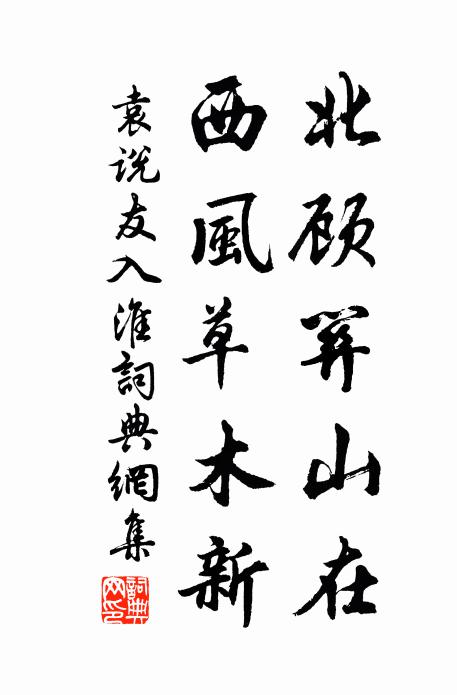 北顾关山在
西風草木新
袁说友入淮詞典網集
詞典网印